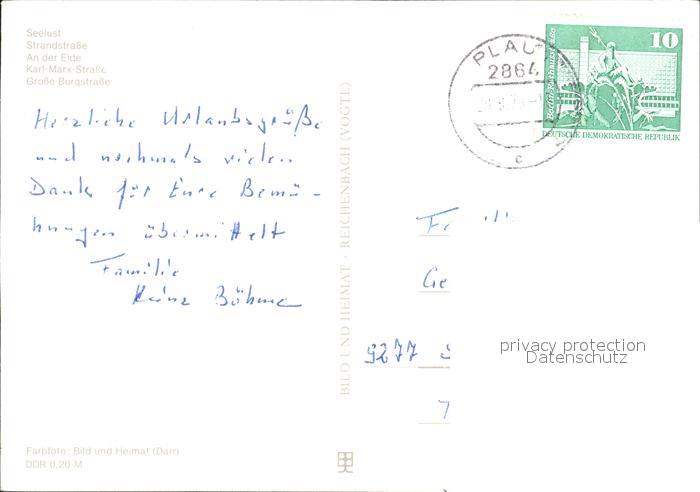 Seelust
Strandstraße
An der Elde
Karl-Marx-Straße
Große Burgstraße
Herzliche Urlaubsgrüße
und nochmals vielen
Dank für Eure Bemü-
hungen übermittelt
Familie
Heinz Böhme
BILD UND HEIMAT · REICHENBACH (VOGTL)
PLAU
2864
c
10
DEUTSCHE DEMOKRATISCHE REPUBLIK
Fa
Ge
9277
privacy protection
Datenschutz
Farbfoto: Bild und Heimat (Darr)
DDR 0,20 M